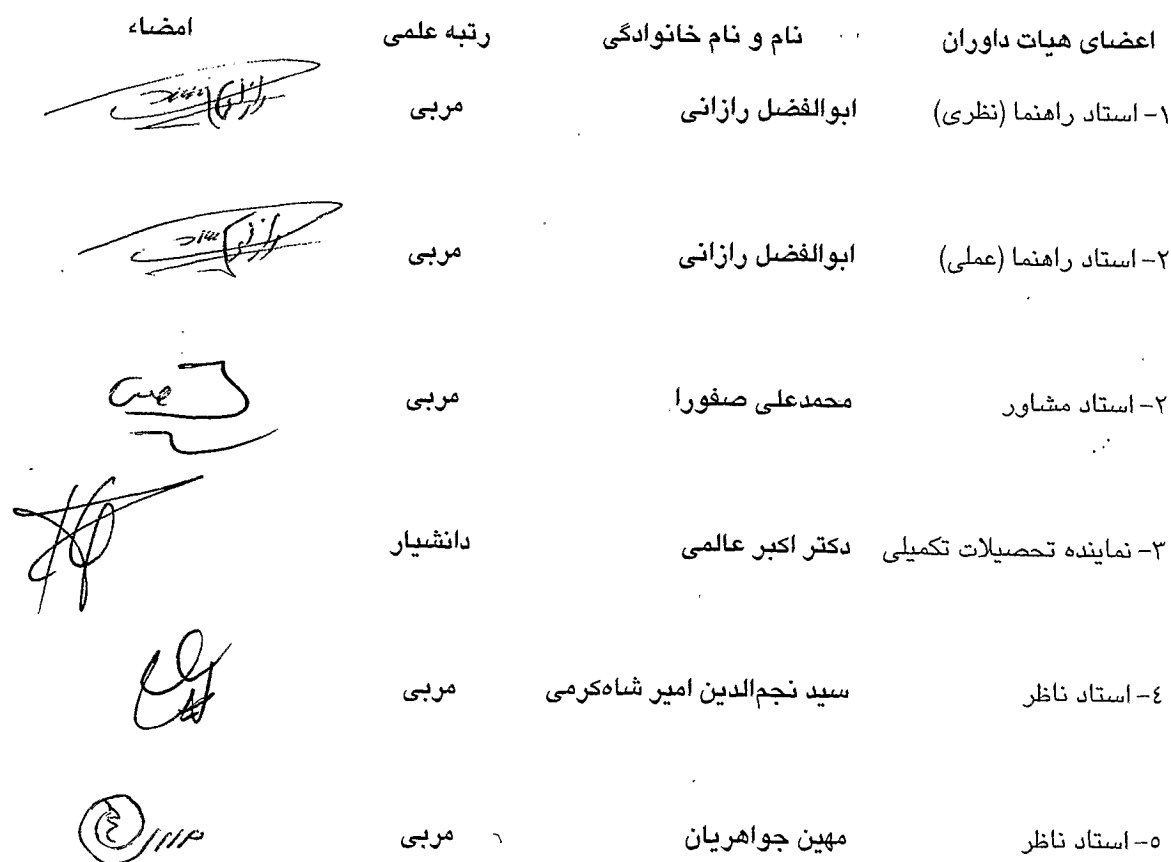 اعضای هیات داوران نام و نام خانوادگی رتبه علمی امضاء
۱- استاد راهنما (نظری) ابوالفضل رازانی مربی
۲- استاد راهنما (عملی) ابوالفضل رازانی مربی
۲- استاد مشاور محمدعلی صفورا مربی
۳- نماینده تحصیلات تکمیلی دکتر اکبر عالمی دانشیار
٤- استاد ناظر سید نجم‌الدین امیر شاه‌کرمی مربی
۵- استاد ناظر مهین جواهریان مربی